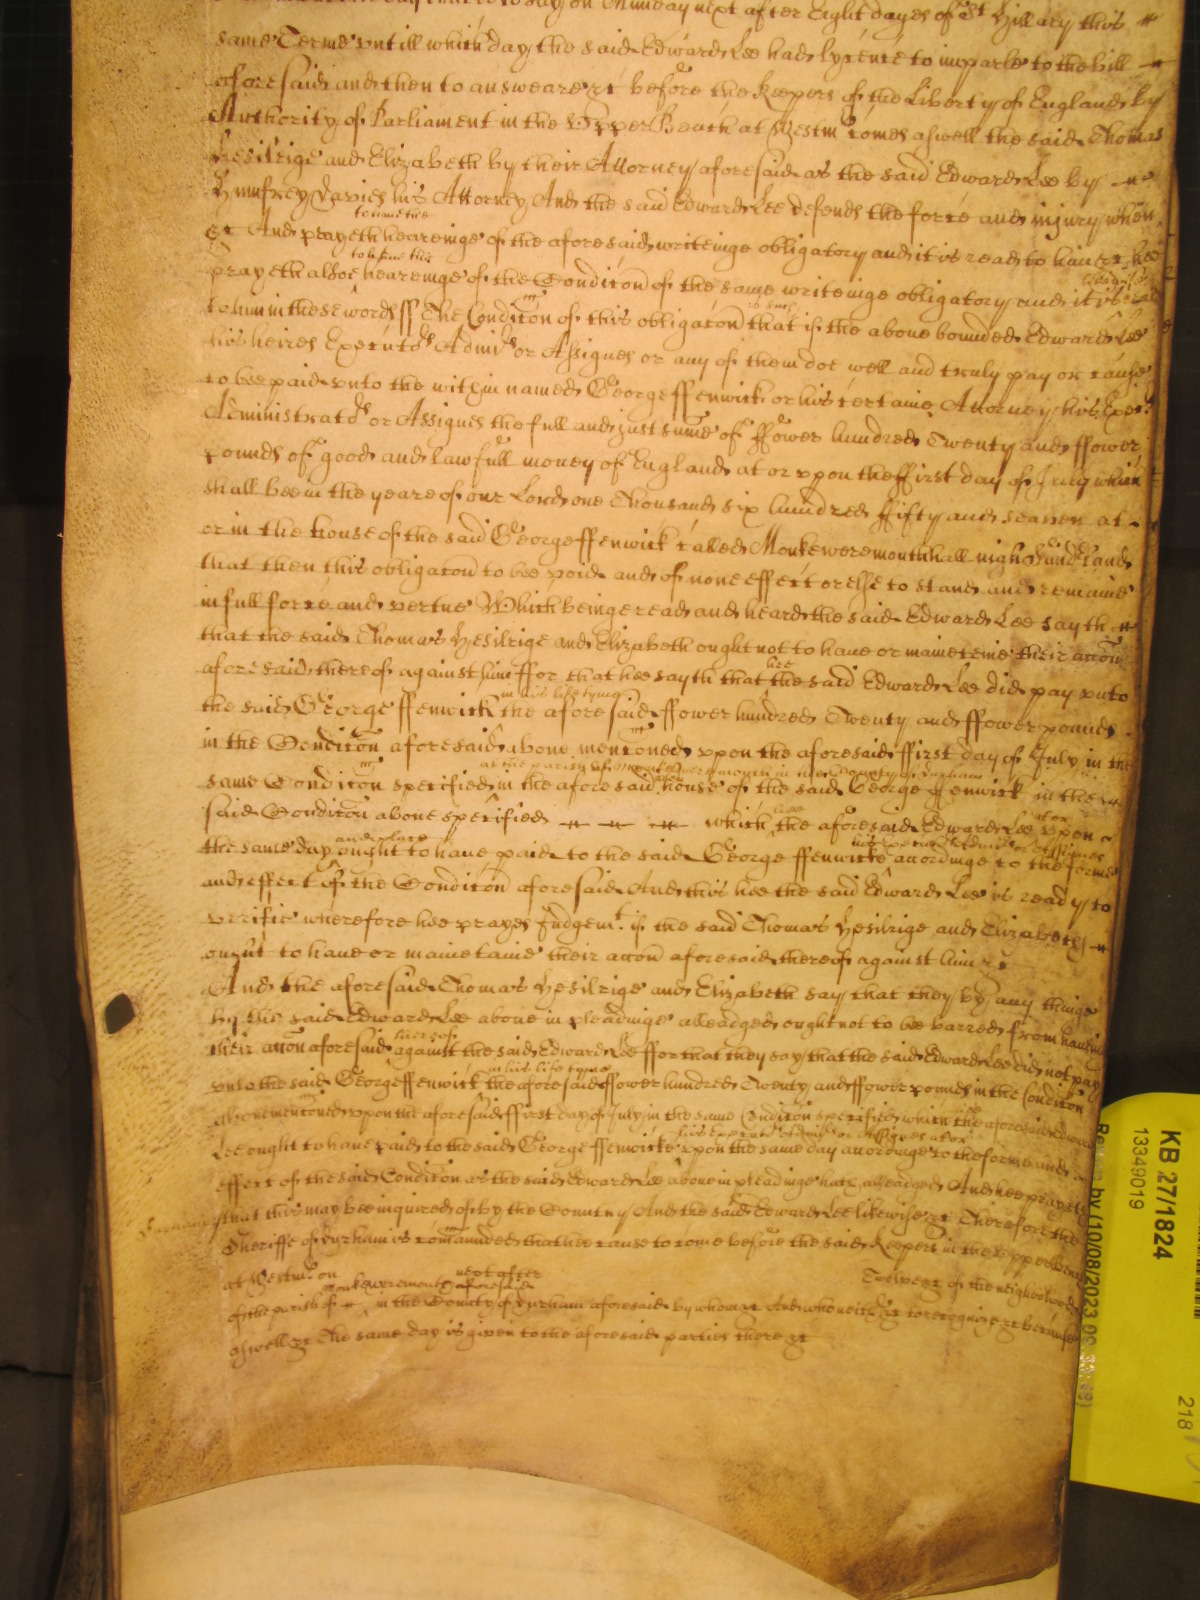 that is to say on Munday next after Eight dayes of St Hillary this
same Terme vntill which day the said Edward Lee had lycence to imparle to the bill
aforesaid and then to answeare &c before the Keepers of the Liberty of England by
Authority of Parliament in the Vpper Bench at Westm Comes aswell the said Thomas
Hesilrige and Elizabeth by their Attorney aforesaid as the said Edward Lee by
Humfrey Davies his Attorney And the said Edward Lee defends the force and iniury when
to him the
&c And prayeth heareinge of the aforesaid writeinge obligatory and it is read to him &c hee
to him the
prayeth alsoe heareinge of the Condicon of the same writeinge obligatory and it is read
to him in these words ss The Condicon of this obligacon is such that if the aboue bounden Edward Lee
his heires Executors Admi'rs or Assignes or any of them doe well and truly pay or cause
to bee paid vnto the within named George ffenwick or his certaine Attorney his Exec
Administrators or Assignes the full and iust sume of ffower hundred Twenty and ffower
pounds of good and lawfull money of England at or vpon the ffirst day of July which
shall bee in the yeare of our Lord one Thousand six hundred ffifty and seaven at
or in the house of the said George ffenwick called Monkeweremouth hall nigh Sunderland
that then this obligacon to bee void and of none effect or else to stand and remaine
in full force and vertue Which beinge read and heard the said Edward Lee sayth
that the said Thomas Hesilrige and Elizabeth ought not to haue or mainteine their accon
aforesaid thereof against him ffor that hee sayth that hee the said Edward Lee did pay vnto
in his life tyme
the said George ffenwick the aforesaid ffower hundred Twenty and ffower pounds
in the Condicon aforesaid aboue menconed vpon the aforesaid ffirst day of July in the
at the parish of Monkeweremouth in the County of Durham
same Condicon specified in the aforesaid house of the said George ffenwick in the
said Condicon aboue specified which hee the aforesaid Edward Lee at or vpon
and place his Executors Admi'rs or Assignes
the same day ought to haue paid to the said George ffenwicke accordinge to the forme
and effect of the Condicon aforesaid And this hee the said Edward Lee is ready to
verifie wherefore hee prayes Judgemt if the said Thomas Hesilrige and Elizabeth
ought to haue or mainetaine their accon aforesaid thereof against him &c
And the aforesaid Thomas Hesilrige and Elizabeth say that they by any thinge
by the said Edward Lee aboue in pleadinge alleadged ought not to bee barred from haueing
thereof
their accon aforesaid against the said Edward Lee ffor that they say that the said Edward Lee did not pay
in his life tyme
vnto the said George ffenwick the aforesaid ffower hundred Twenty and ffower pounds in the Condicon
abouemenconed vpon the aforesaid ffirst day of July in the same Condicon specified which hee the aforesaid Edward
his Executors Admi'rs or Assignes at or
Lee ought to haue paid to the said George ffenwicke vpon the same day accordinge to the forme and
effect of the said Condicon as the said Edward Lee aboue in pleadinge hath alleadged And hee prayeth
that this may bee inquired of by the Country And the said Edward Lee likewise &c Therefore the
Sheriffe of Durham is comaunded that hee cause to come before the said Keepers in the vpper Bench
at Westm on next after Twelve &c of the neighborhood
Monkeweremouth aforesaid
of the parish of in the County of Durham aforesaid by whom &c And who neither &c to recognize &c because
aswell &c The same day is given to the aforesaid parties there &c
KB 27/1824
13349019
218